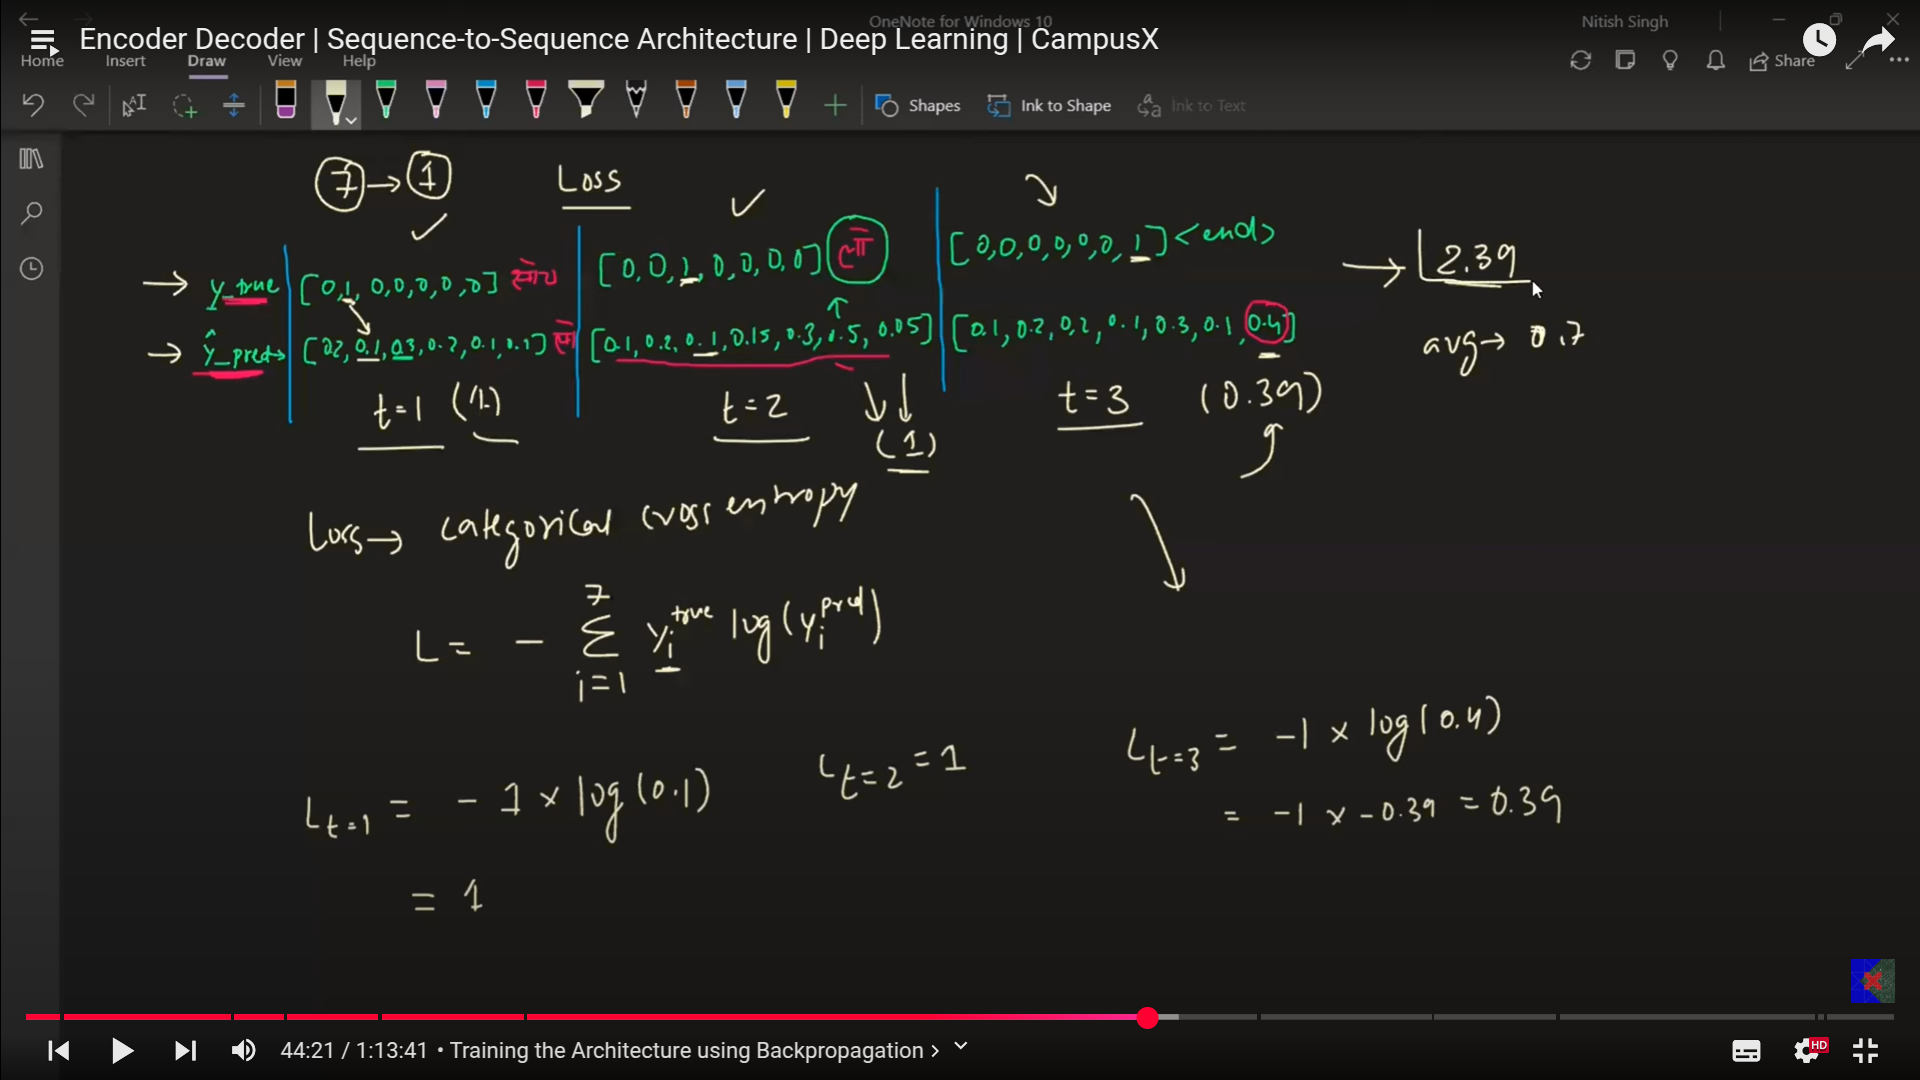 OneNote for Windows 10
Nitish Singh
Encoder Decoder | Sequence-to-Sequence Architecture | Deep Learning | CampusX
Home Insert Draw View Help
Share
Shapes Ink to Shape Ink to Text
7 → 1 Loss
y_true [0,1,0,0,0,0,0] [0,0,1,0,0,0,0] लो [0,0,0,0,0,0,1] <end> → 2.39
ŷ_pred → [0.2, 0.1, 0.3, 0.2, 0.1, 0.1] [0.1, 0.2, 0.1, 0.15, 0.3, 0.5, 0.05] [0.1, 0.2, 0.2, 0.1, 0.3, 0.1, 0.4]
avg → 0.7
t=1 (1.) t=2 (1) t=3 (0.39)
Loss → categorical cross entropy
L = - Σ_{i=1}^{7} y_i^{true} log(y_i^{pred})
L_{t=1} = - 1 × log(0.1) L_{t=2} = 1 L_{t=3} = -1 × log(0.4)
= -1 × -0.39 = 0.39
= 1
44:21 / 1:13:41 • Training the Architecture using Backpropagation >
HD